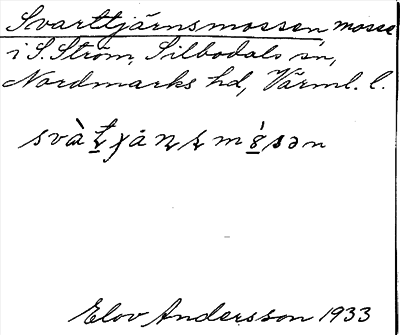 Svarttjärnsmossen mosse
i S. Ström, Silbodals sn,
Nordmarks hd, Värml. l.
Elov Andersson 1933